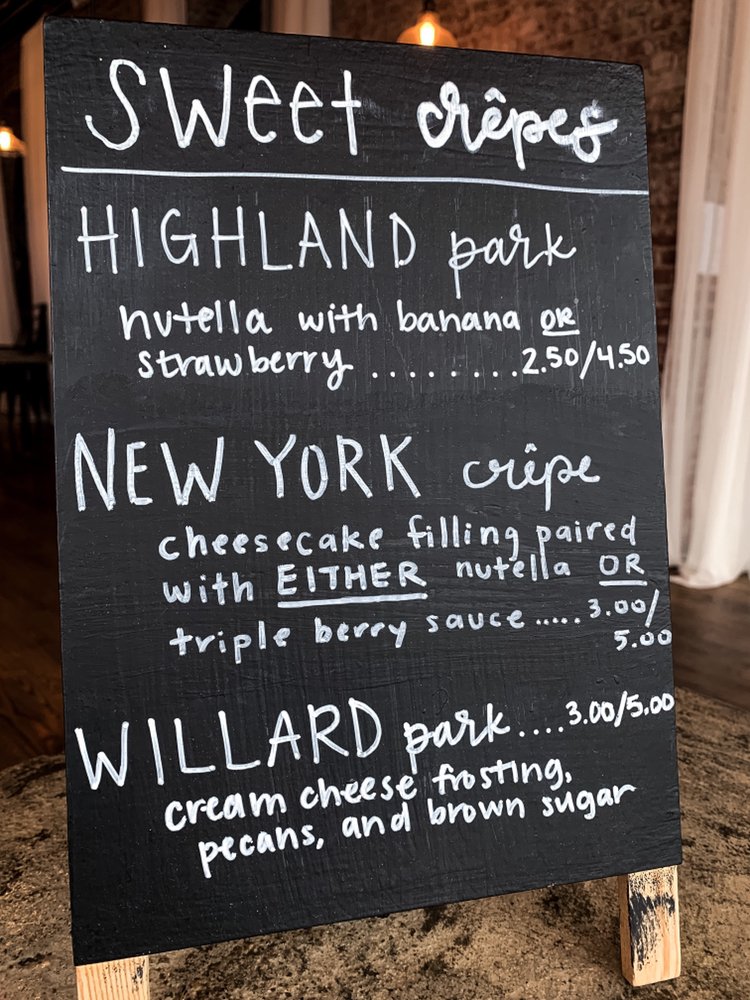 Sweet crêpes
HIGHLAND park
nutella with banana OR
strawberry ......... 2.50/4.50
NEW YORK crêpe
cheesecake filling paired
with EITHER nutella OR
triple berry sauce ..... 3.00/
5.00
WILLARD park .... 3.00/5.00
cream cheese frosting,
pecans, and brown sugar